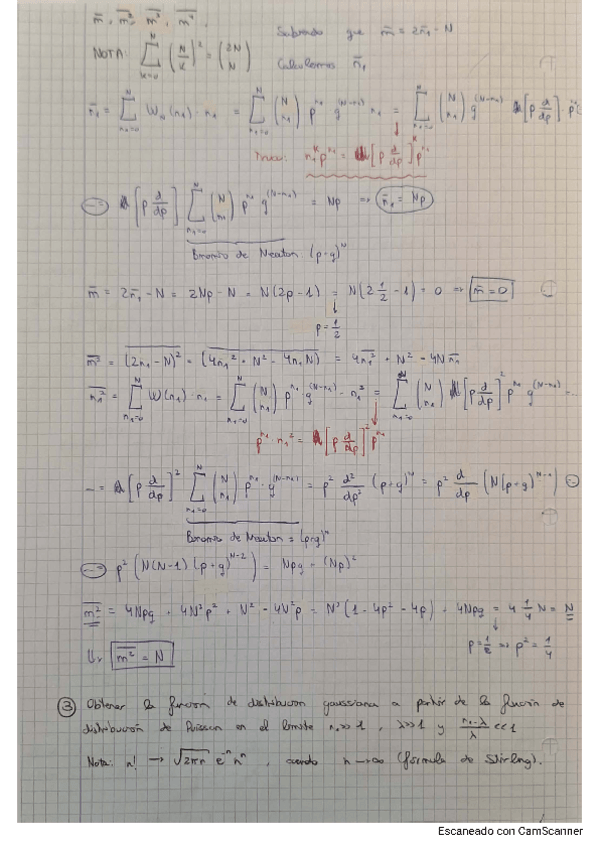 m̅, m̅², m̅³, m̅⁴.
Sabiendo que m̅ = 2n̅₁ - N
NOTA: Σ_{k=0}^{N} (N/k)² = (2N N)
Calculamos n̅₁
n̅₁ = Σ_{n₁=0}^{N} W_N(n₁) · n₁ = Σ_{n₁=0}^{N} (N n₁) p^{n₁} q^{(N-n₁)} n₁ = Σ_{n₁=0}^{N} (N n₁) q^{(N-n₁)} [p d/dp] p^{n₁}
Truco: n₁^K p^{n₁} = [p d/dp]^K p^{n₁}
[p d/dp] Σ_{n₁=0}^{N} (N n₁) p^{n₁} q^{(N-n₁)} = Np ⇒ n̅₁ = Np
Binomio de Newton (p+q)^N
m̅ = 2n̅₁ - N = 2Np - N = N(2p-1) = N(2 1/2 - 1) = 0 ⇒ m̅=0
p=1/2
= (2n₁-N)² = (4n₁² + N² - 4n₁N) = 4n̅₁² + N² - 4N n̅₁
n̅₁² = Σ_{n₁=0}^{N} W(n₁) · n₁ = Σ_{n₁=0}^{N} (N n₁) p^{n₁} q^{(N-n₁)} · n₁² = Σ_{n₁=0}^{N} (N n₁) [p d/dp]² p^{n₁} q^{(N-n₁)} ...
p^{n₁} · n₁² = [p d/dp]² p^{n₁}
... = [p d/dp]² Σ_{n₁=0}^{N} (N n₁) p^{n₁} · q^{(N-n₁)} = p² d²/dp² (p+q)^N = p² d/dp (N(p+q)^{N-1})
Binomio de Newton = (p+q)^N
p² (N(N-1) (p+q)^{N-2}) = Npq + (Np)²
m̅² = 4Npq + 4N²p² + N² - 4N²p = N² (1 + 4p² - 4p) + 4Npq = 4 1/4 N = N
p=1/2 ⇒ p² = 1/4
m̅² = N
③ Obtener la función de distribución gaussiana a partir de la función de
distribución de Poisson en el límite n₁>>1, λ>>1 y (n₁-λ)/λ <<1
Nota: n! → √2πn e^{-n} n^n, cuando n→∞ (fórmula de Stirling).
Escaneado con CamScanner